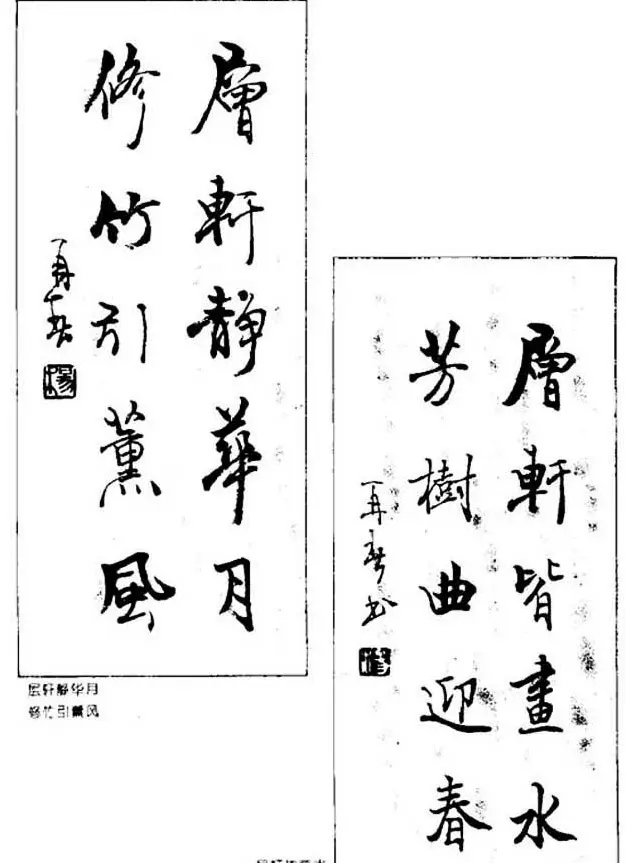 層軒靜華月
修竹引薰風
再春
层轩静华月
修竹引薰风
層軒皆畫水
芳樹曲迎春
再春书